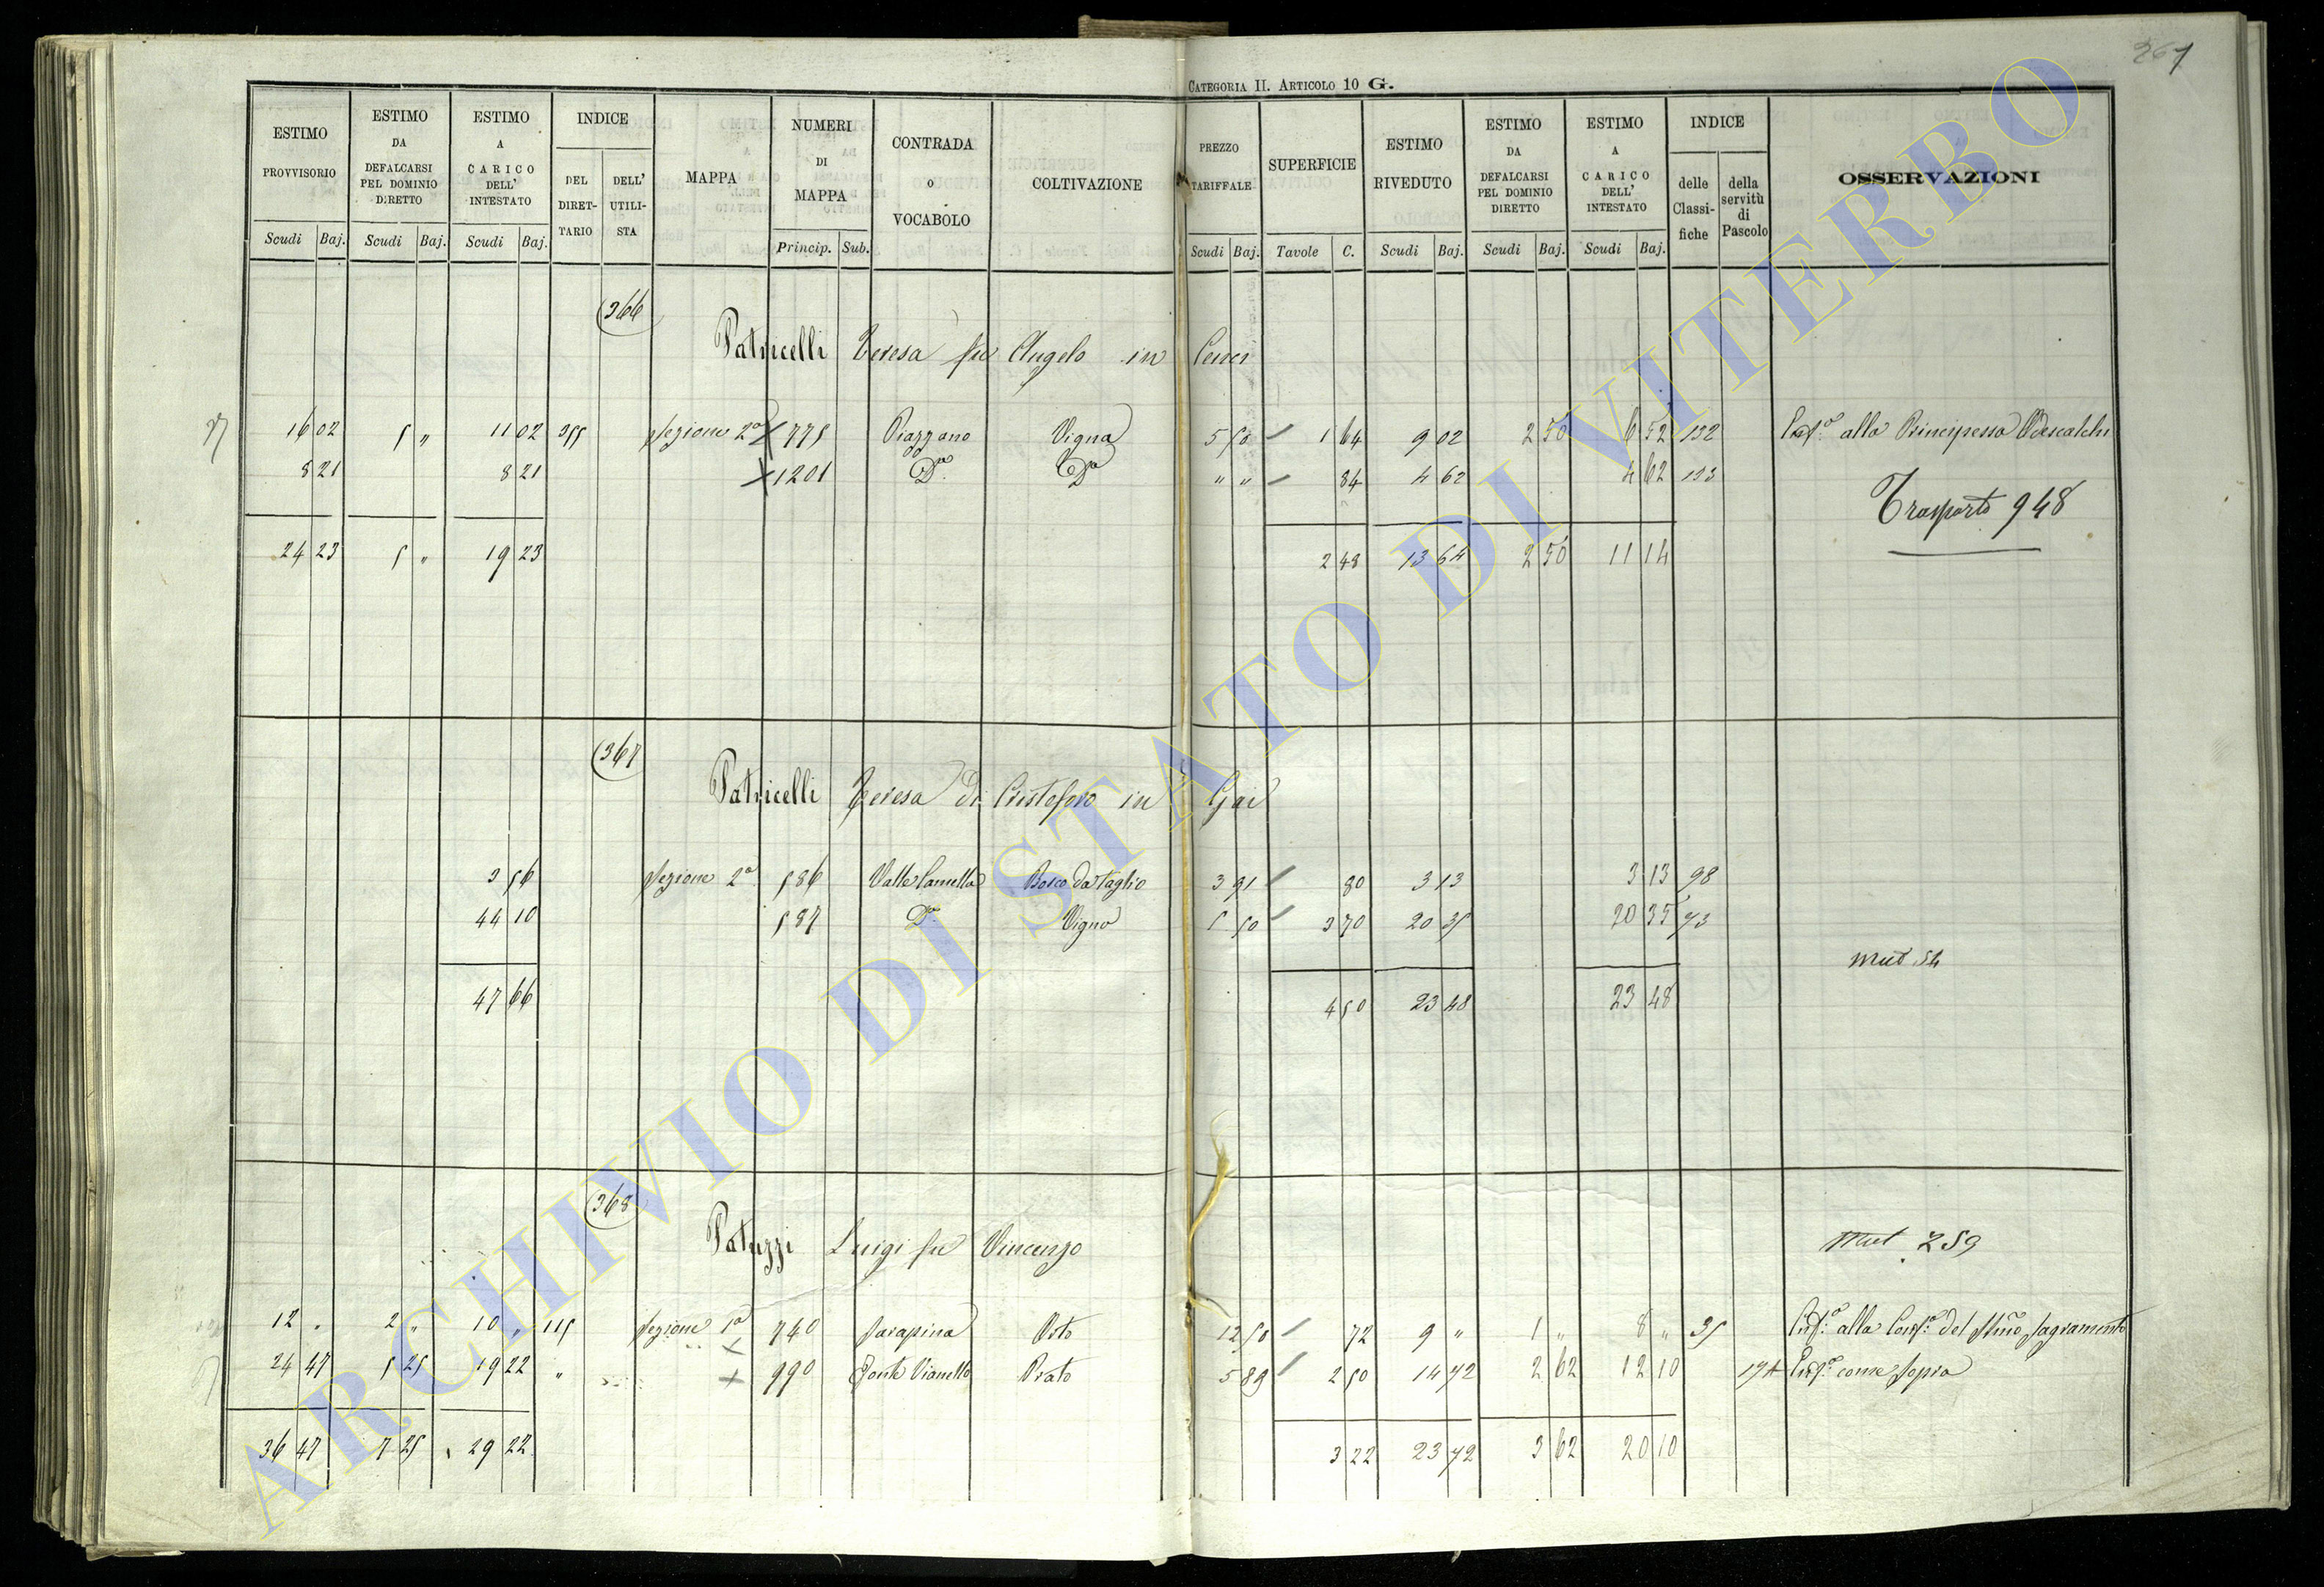 267
CATEGORIA II. ARTICOLO 10 G.
ESTIMO PROVVISORIO Scudi Baj.
ESTIMO DA DEFALCARSI PEL DOMINIO DIRETTO Scudi Baj.
ESTIMO A CARICO DELL' INTESTATO Scudi Baj.
INDICE DEL DIRET-TARIO DELL' UTILI-STA
MAPPA
NUMERI DI MAPPA Princip. Sub.
CONTRADA o VOCABOLO
COLTIVAZIONE
PREZZO TARIFFALE Scudi Baj.
SUPERFICIE Tavole C.
ESTIMO RIVEDUTO Scudi Baj.
ESTIMO DA DEFALCARSI PEL DOMINIO DIRETTO Scudi Baj.
ESTIMO A CARICO DELL' INTESTATO Scudi Baj.
INDICE delle Classi-fiche della servitù di Pascolo
OSSERVAZIONI
366
Patricelli Teresa fu Angelo in Cenci
16 02 5 " 11 02 355 Sezione 2a 775 Piazzano Vigna 5 50 1 64 9 02 2 50 6 52 132 Enfa alla Principessa Odescalchi
8 21 8 21 1201 Da Da " " 84 4 62 4 62 133
Trasporto 948
24 23 5 " 19 23 2 48 13 64 2 50 11 14
367
Patricelli Teresa di Cristoforo in Gai
3 56 Sezione 2a 586 Valle Bosco da taglio 3 91 80 3 13 3 13 98
44 10 587 Da Vigna 5 50 3 70 20 35 20 35 73
mut 54
47 66 4 50 23 48 23 48
368
Patuzzi Luigi fu Vincenzo
Mut 259
12 " 2 " 10 " 115 Sezione 1a 740 Sarapina Orto 12 50 72 9 " 1 " 8 " 35 Enfa alla Confa del SSmo Sagramento
24 47 5 25 19 22 " 990 Fonte Vianello Prato 5 89 2 50 14 72 2 62 12 10 174 Enfa come sopra
36 47 7 25 29 22 3 22 23 72 3 62 20 10
ARCHIVIO DI STATO DI VITERBO